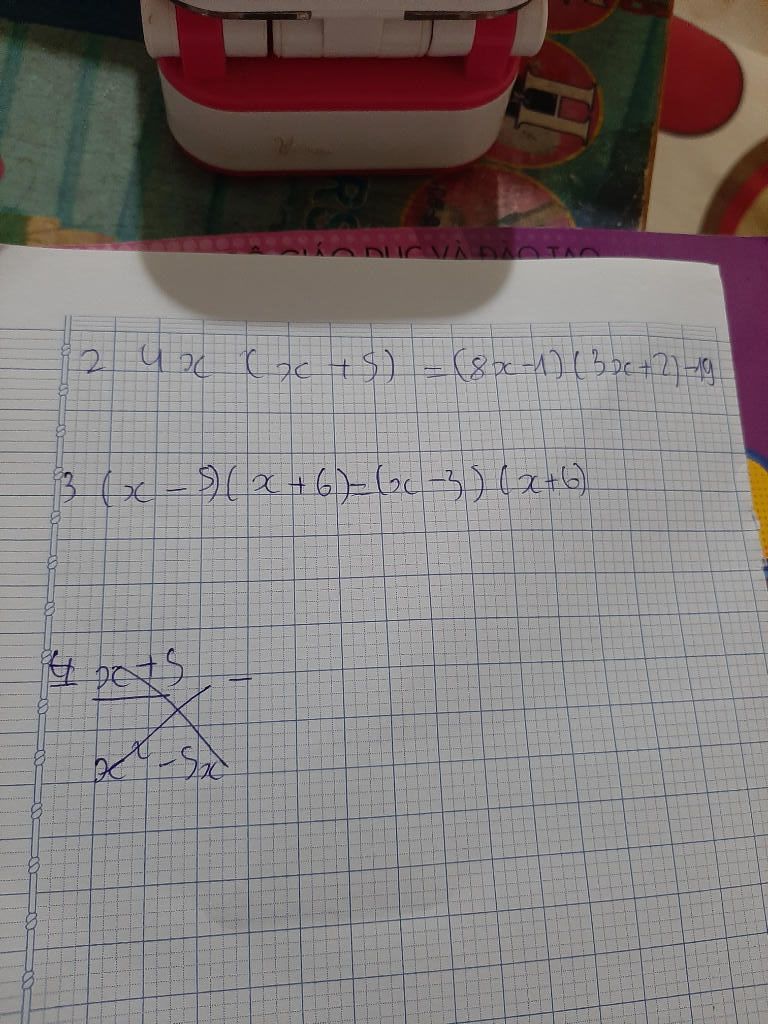 RS
GIÁO DỤC VÀ ĐÀO TẠO
2 4x (x + 5) = (8x - 1)(3x + 2) - 19
3 (x - 5)(x + 6) = (x - 3)(x + 6)
4 x + 5 -
x² - 5x